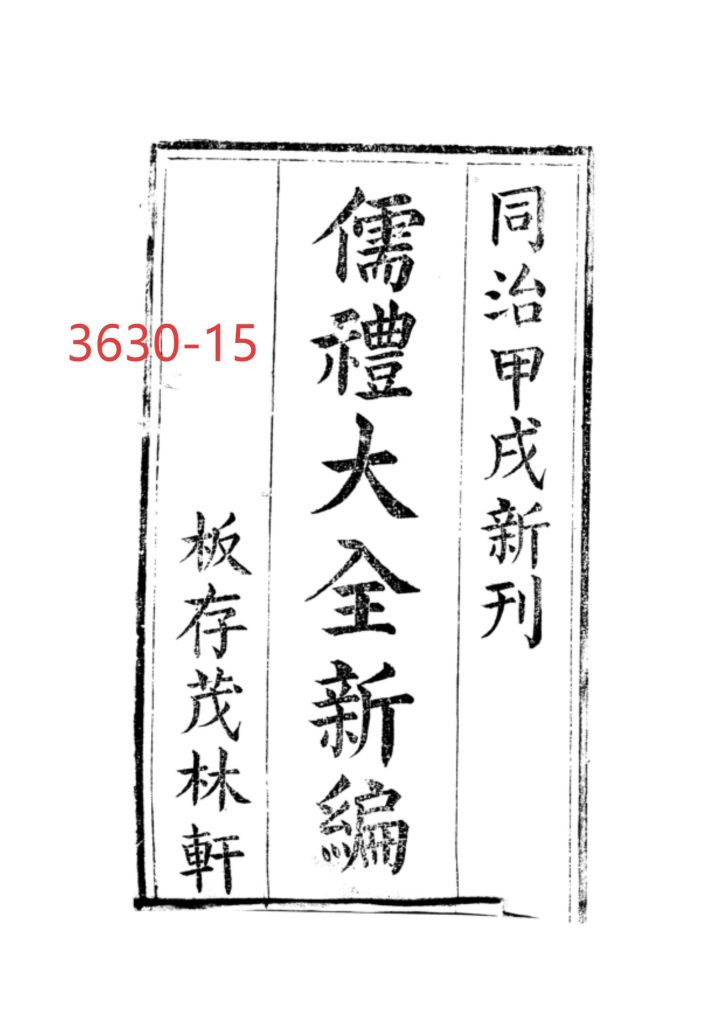 同治甲戌新刊
儒禮大全新編
板存茂林軒
3630-15